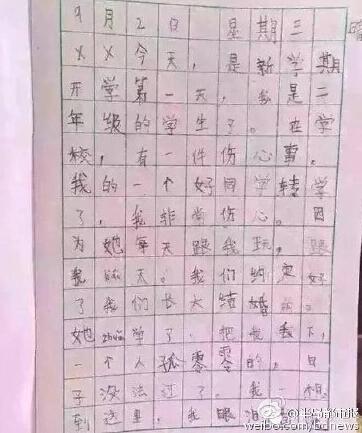 9月2日 星期三 晴
××今天，是新学期
开学第一天，我是二
年级的学生了。在学
校，有一件伤心事。
我的一个好同学转学
了，我非常伤心。因
为她每天跟我玩，跟
我聊天。我们约定好
了我们长大结婚的。
她zhuan学了，把我丢下，
一个人孤零零的，日
子没法过了。我一想
到这里，我眼泪
weibo.com/bdnews